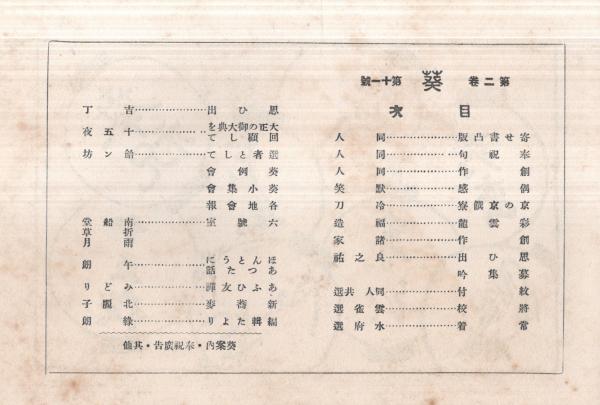 第二卷 葵 第十一號
目次
寄せ書凸版……………同人
奉祝句……………同人
創作……………同人
偶感……………默笑
京の京饌寮……………冷刀
彩雲龍……………福造
創作……………諸家
思ひ出……………良之祐
募集吟
紋付……………同人共選
將校……………雲雀選
常着……………水府選
思ひ出……………吉丁
大正の御大典を回顧して……………十五夜
選者として……………飴ン坊
葵例會
葵小集會
各地會報
六號室……………南船堂
折草
雨月
ほんとうにあつた話……………午朗
あふひ友禪……………みどり
新蕎麥……………北麗子
編輯たより……………綠朗
葵案内・奉祝廣告・其他